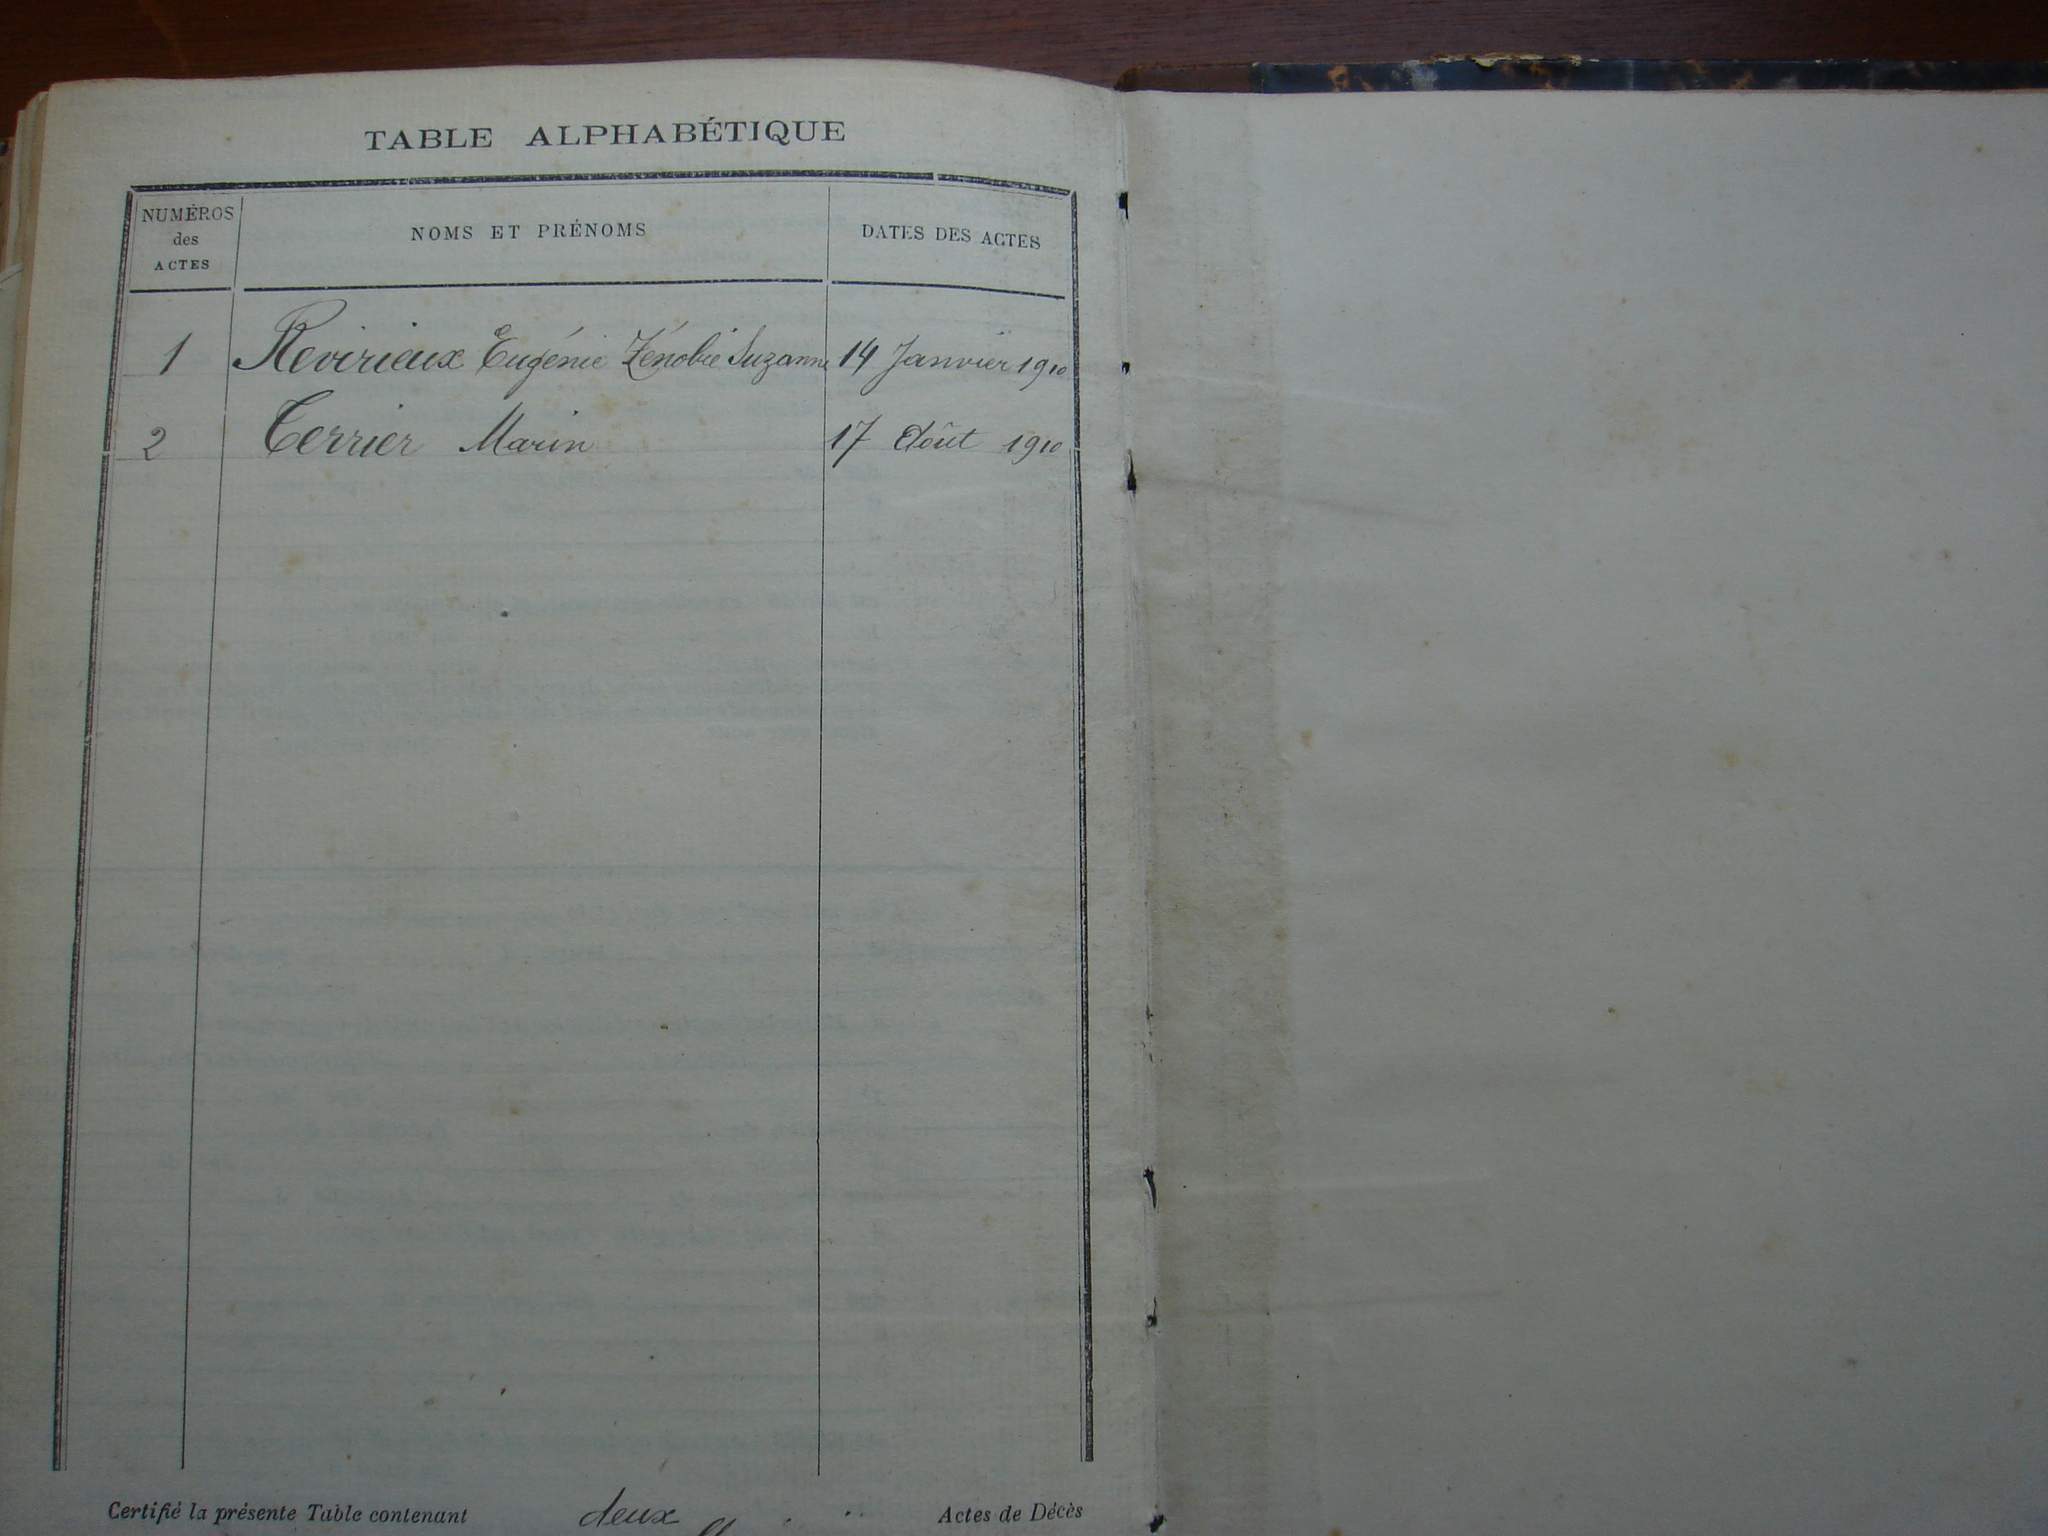 TABLE ALPHABÉTIQUE
NUMÉROS des ACTES NOMS ET PRÉNOMS DATES DES ACTES
1 Revirieux Eugénie Zénobie Suzanne 14 Janvier 1910
2 Terrier Marin 17 Août 1910
Certifié la présente Table contenant deux Actes de Décès